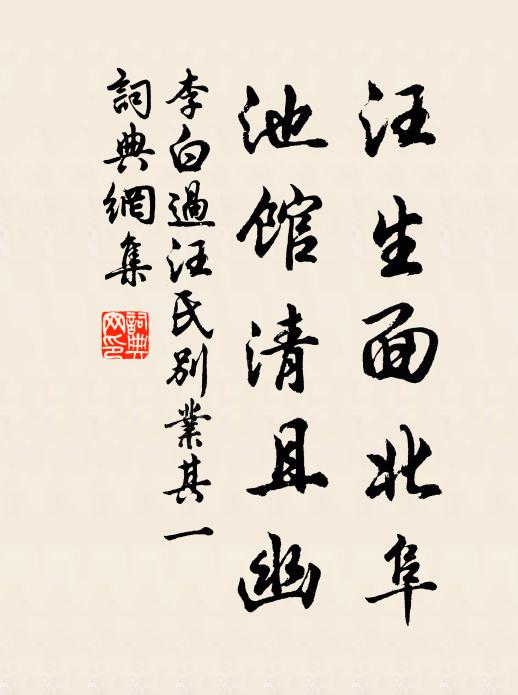 汪生面北阜
池馆清且幽
李白過汪氏別業其一
詞典網集
詞典网印